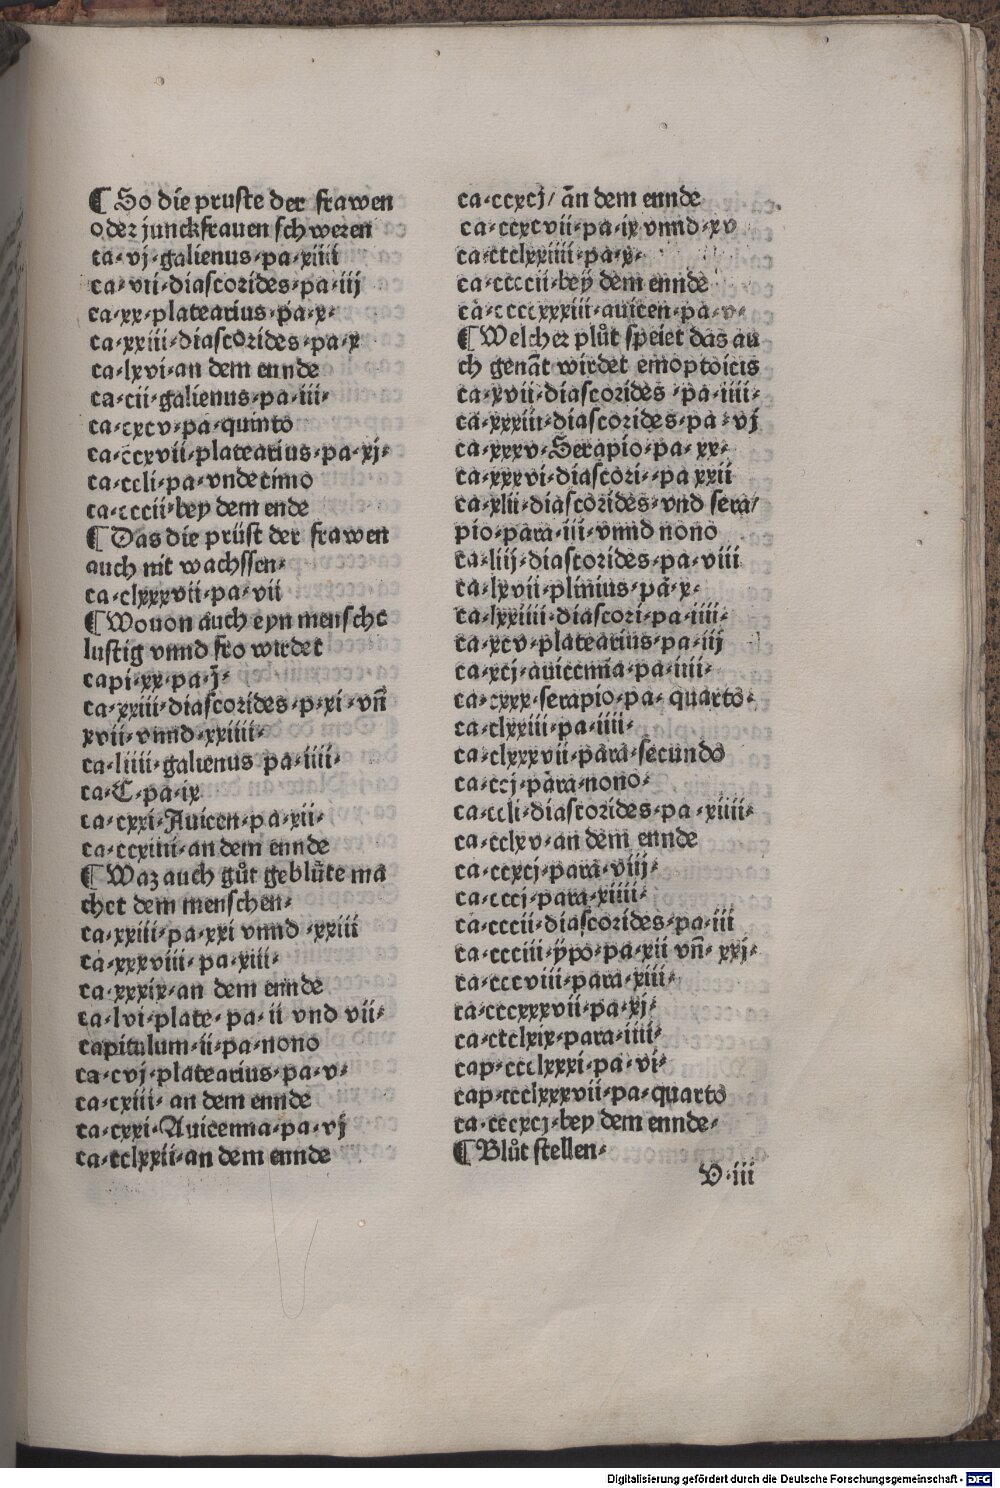 ¶ So die pruste der frawen
oder junckfrauen schweren
ca·vj·galienus·pa·xiiii
ca·vii·diascorides·pa·iij
ca·xx·platearius·pa·x·
ca·xxiii·diascorides·pa·x
ca·lxvi·an dem ennde
ca·cii·galienus·pa·iii·
ca·cxcv·pa·quinto
ca·ccxvii·platearius·pa·xj·
ca·ccli·pa·vndecimo
ca·cccii·bey dem ende
¶ Das die prüst der frawen
auch nit wachssen·
ca·clxxxvii·pa·vii
¶ Wouon auch eyn mensche
lustig vnnd fro wirdet
capi·xx·pa·j·
ca·xxiii·diascorides·p·xi·vñ
xvii·vnnd·xxiiii·
ca·liiii·galienus pa·iiii·
ca·C·pa·ix
ca·cxxi·Auicen·pa·xii·
ca·ccxiiii·an dem ennde
¶ Waz auch gůt geblüte ma
chet dem menschen·
ca·xxiii·pa·xxi vnnd·xxiii
ca·xxxviii·pa·xiii·
ca·xxxix·an dem ennde
ca·lvi·plate·pa·ii vnd vii·
capitulum·ii·pa·nono
ca·cvj·platearius·pa·v·
ca·cxiii·an dem ennde
ca·cxxi·Auicenna·pa·vj
ca·cclxxii·an dem ennde
ca·ccxcj/ an dem ennde
ca·ccxcvii·pa·ix vnnd·xv
ca·cclxxiiii·pa·x·
ca·ccccii·bey dem ennde
ca·ccccxxxiii·auicen·pa·v·
¶ Welcher plůt speiet das au
ch genãt wirdet emoptoicis
ca·xvii·diascorides·pa·iiii·
ca·xxxiii·diascorides·pa·vj
ca·xxxv·Serapio·pa·xx·
ca·xxxvi·diascori·pa xxii
ca·xlii·diascorides·vnd sera/
pio·para·iii·vnnd nono
ca·liij·diascorides·pa·viii
ca·lxvii·plinius·pa·x·
ca·lxxiiii·diascori·pa·iiii·
ca·xcv·platearius·pa·iij
ca·xcj·auicenna·pa·iiii·
ca·cxxx·serapio·pa·quarto·
ca·clxxiii·pa·iiii·
ca·clxxxvii·para·secundo
ca·ccj·para·nono·
ca·ccli·diascorides·pa·xiiii·
ca·cclxv·an dem ennde
ca·ccxcj·para·viij·
ca·cccj·para·xiiii·
ca·cccii·diascorides·pa·iii
ca·ccciii·ÿpo·pa·xii vñ·xxj·
ca·cccviii·para·xiii·
ca·cccxxxvii·pa·xj·
ca·ccclxix·para·iiii·
cap·ccclxxxi·pa·vi·
cap·ccclxxxvii·pa·quarto
ca·cccxcj·bey dem ennde·
¶ Blůt stellen·
V·iii
Digitalisierung gefördert durch die Deutsche Forschungsgemeinschaft · DFG